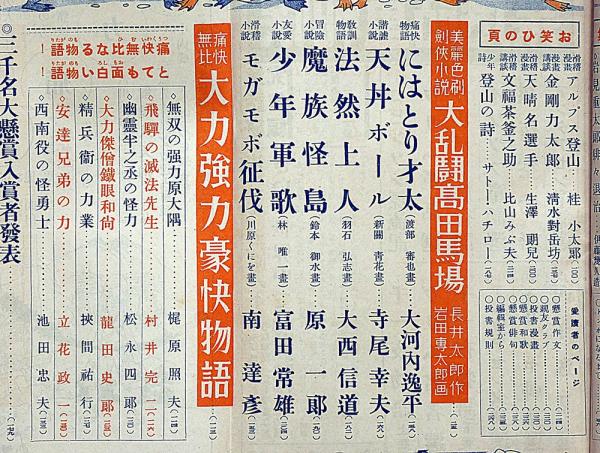 お笑ひの頁
滑稽漫畫 アルプス登山 桂小太郎
漫畫講談 金剛力太郎 淸水對岳坊
滑稽漫畫 天晴名選手 生澤朗兒
漫畫講談 文福茶釜之助 比山みぶ夫
少年詩 登山の詩 サトーハチロー
愛讀者のページ
○懸賞作文
○親友クラブ
○投書漫畫
○懸賞和歌
○懸賞俳句
○編輯室から
○投書規則
美麗色刷劍俠小説 大乱闘髙田馬場 長井太郎作 岩田専太郎画
痛快物語 にはとり才太 (渡部審也畫) 大河内逸平
諧謔小説 天井ボール (新關靑花畫) 寺尾幸夫
敎訓物語 法然上人 (羽石弘志畫) 大西信道
冒險小説 魔族怪島 (鈴木御水畫) 原一郎
友愛小説 少年軍歌 (林唯一畫) 富田常雄
滑稽小説 モガモボ征伐 (川原くにを畫) 南達彥
痛快無比 大力強力豪快物語
◇無双の强力原大隅 梶原照夫
◇飛驒の滅法先生 村井完二
◇幽靈半之丞の怪力 松永四郎
◇大力傑僧鐵眼和尚 龍田史郞
◇精兵衞の力業 挾間祐行
◇安達兄弟の力 立花政一
◇西南役の怪勇士 池田忠夫
痛快無比なる物語!
とても面白い物語!
◎三千名大懸賞入賞者發表